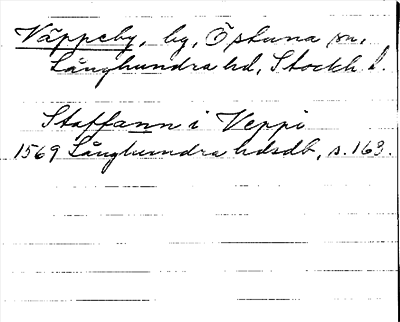 Väppeby, by, Östuna sn,
Långhundra hd, Stockh. l.
Staffann i Veppi
1569 Långhundra hdsdb, s. 163.